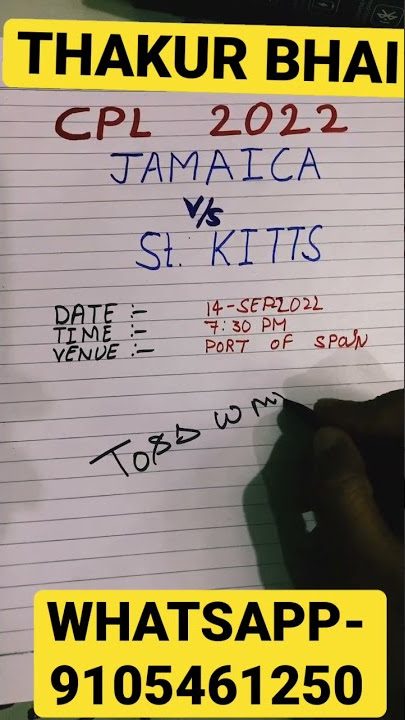 THAKUR BHAI
CPL 2022
JAMAICA
V/S
St. KITTS
DATE :- 14-SEP-2022
TIME :- 7:30 PM
VENUE :- PORT OF SPAIN
Toss
WHATSAPP-
9105461250